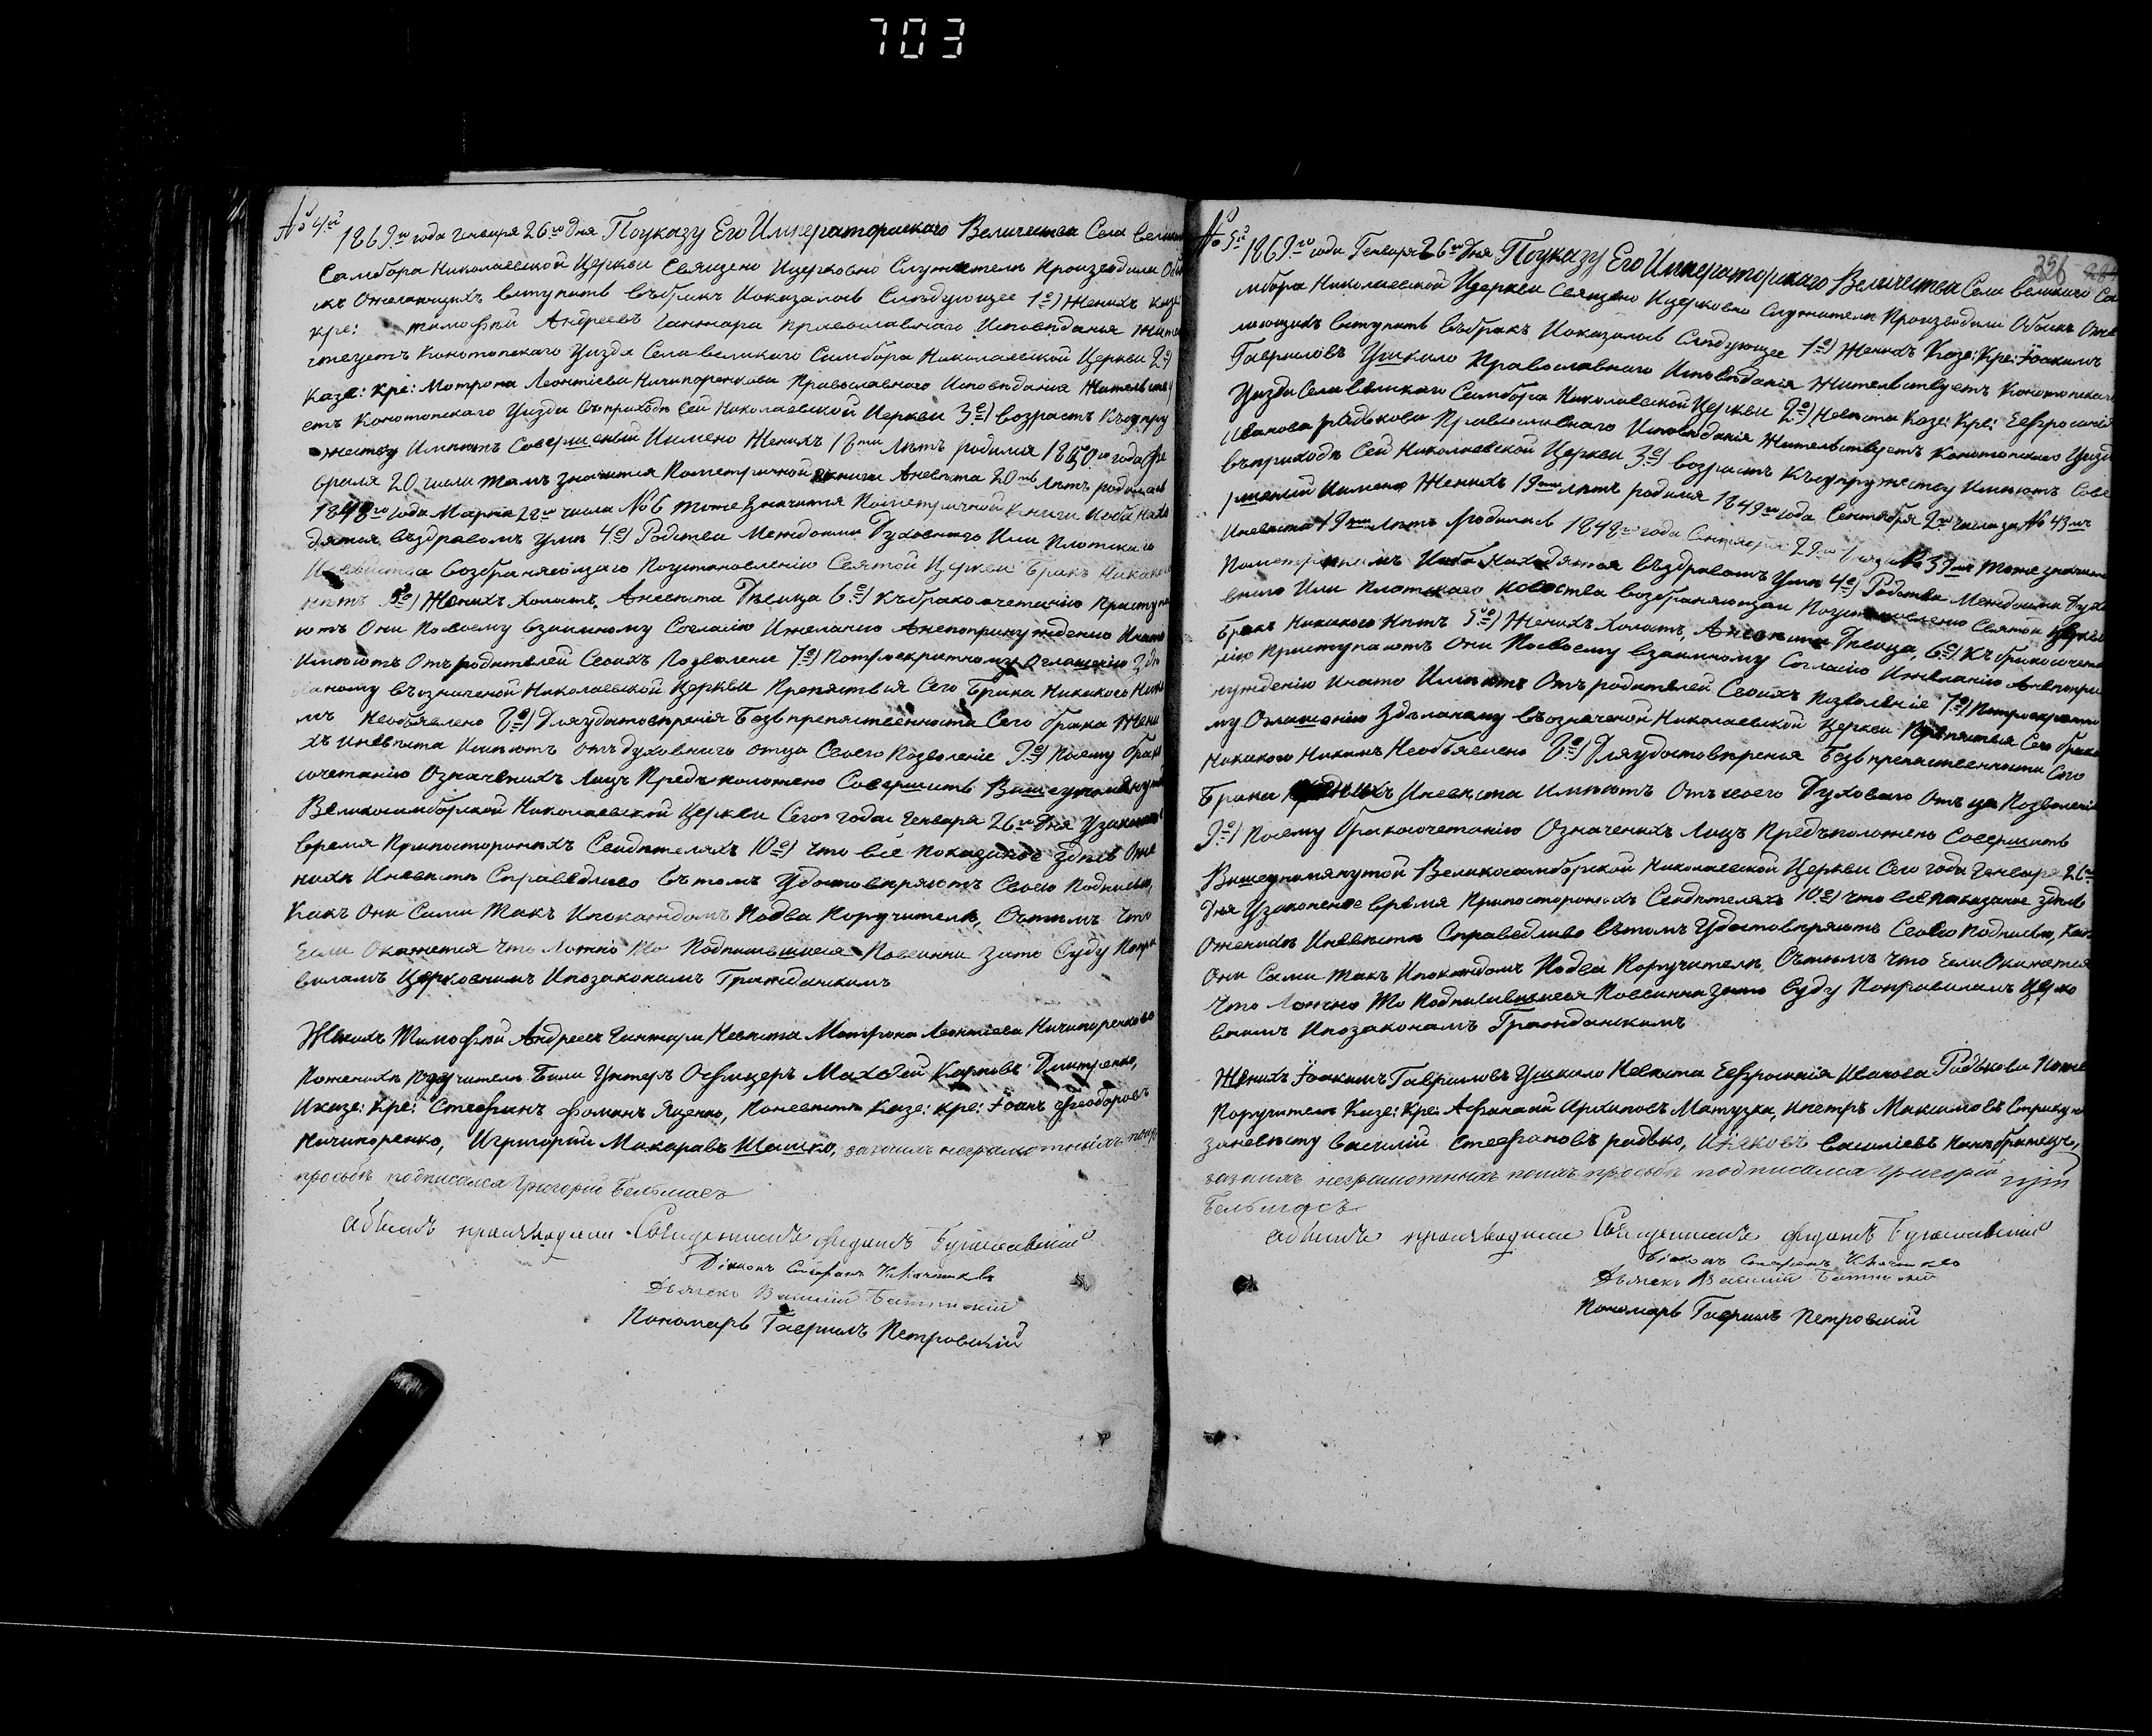 703
№ 4й 1869го года Генваря 26го дня По указу Его Императорскаго Величества Села Великаго
Самбора Николаевской Церкви Священо Ицерковно Служители Производили Обы
скъ Ожелающихъ вступить въбракъ Иоказалось Следующее 1е) Женихъ казе:
кре: тимофей Андреевъ Ганжара православнаго Исповеданія жите
лствуетъ Конотопскаго Уезда Села великого Самбора Николаевской Церкви 2е)
Казе: Кре: Мотрона Леонтіева Ничипоренкова Православнаго Исповеданія Жительству
етъ Конотопского Уезда въприходе Сей Николаевской Церкви 3е) возрастъ Къ супру
жеству Имеютъ Совершеный Имено Женихъ 18ти Летъ родился 1850го года Фе
враля 20 числа тамъ значится Пометричной книги Аневеста 20ть Летъ родилась
1848го года Марта числа № 6 тоже Значится Пометричной Книги Иоба Нахо
дятся въздравомъ уме 4е) Родства Междоими Духовного Или Плотскаго
Исвойства возбраняющаго Поустановленію Святой Церкви Бракъ Никакого
нетъ 5е) Женихъ Холостъ, Аневеста Девица 6е) Къбракосочетанію Приступа
ютъ Они Посвоему взаимному Согласію Ижеланію Анепопринуждению Инато
Имеютъ Отъродителей Своихъ Позволение 7е) Потроекратному Оглашенію Зде
ланому въозначеной Николаевской Церкви Препятствія Сего Брака Никакого Нике
мъ Необъявлено 8е) Дляудостоверенія Безъпрепятственности Сего брака Жени
хъ Иневеста Имеютъ отъдуховнаго отца Своего Позволеніе 9е) Посему брако
сочетанію Означеныхъ Лицъ Предположено Совершить Вышеупомянутой
Великосамборской Николаевской Церкви Сего года Генваря 26го Дня Узаконеное
время Припосторонихъ Свидетеляхъ 10е) что всё показаное здесь Оже
нихе Иневесте Справедливо вътомъ Удостоверяютъ Своею Подписью,
Какъ Они Сами Такъ Ипокаждомъ Подва Поручителя, Сътемъ Что
Если Окажется что Ложно То Подписавшиеся Повинни Зато Суду Попра
виламъ Церковнимъ Ипозаконамъ Гражданскимъ
Женихъ Тимофей Андреевъ Ганжара Невеста Мотрона Леонтіева Ничипоренкова
Поженихе Поручители Били Унтеръ Офицеръ Карповъ Дмитренко,
Иказе: Кре: Стефанъ Фоминъ Яценко, Поневесте Казе: Кре: Іоанъ Феодоровъ
Ничипоренко, Игригорій Макаровъ Шашко, занихъ неграмотныхъ поихъ
просьбе подписался Григорій Бельмасъ
Обыскъ производили Священникъ Фидонъ
Діаконъ Стефанъ
Дьячекъ Василій
Пономарь Гавриилъ Петровскій
326
№ 5й 1869го года Генваря 26го Дня По указу Его Императорскаго Величества Села великого Са
мбора Николаевской Церкви Священо Ицерковно Служители Производили Обыскъ Оже
лающихъ вступить въбракъ Иоказалось Следующее 1е) Женихъ Казе: Кре: Іоакимъ
Гавриловъ Ушкало Православнаго Исповеданія Жительствуетъ Конотопскаго
Уезда Села Великаго Самбора Николаевской Церкви 2е) Невеста Казе: Кре: Евфросинія
Иванова Радькова Православнаго Исповеданія Жительствуетъ Конотопского Уезда
въприходе Сей Николаевской Церкви 3е) возрастъ Къ супружеству Имеютъ Сове
ршеній Имено Женихъ 19ти летъ родился 1849го года Сентября 2го числа за № 43мъ
Иневеста 19ти Летъ Родилась 1849го года Сентября 29го № 39мъ Тоже значит
Пометрикамъ Иоба Находятся въздравомъ Уме 4е) Родства Междоими Духо
вного Или Плотскаго Исвойства возбраняющаго Поустановленію Святой Церкви
Бракъ Никакого Нетъ 5е) Женихъ Холостъ, Аневеста Девица, 6е) Къбракосочета
нію Приступаютъ Они Посвоему взаимному Согласію Ижеланію Анепопри
нужденію Инато Имеютъ Отъродителей Своихъ позволеніе 7е) Потроекратно
му Оглашенію Зделаному въозначеной Николаевской Церкви Препятствія Сего брака
Никакого Никемъ Необъявлено 8е) Дляудостоверенья Безъпрепятственности Сего
Брака Женихъ Иневеста Имеютъ Отъсвоего Духовного Отца Позволеніе
9е) Посему бракосочетанію Означеныхъ Лицъ Предположено Совершить
Вышеупомянутой Великосамборской Николаевской Церкви Сего года Генваря 26го
Дня Узаконеное время Припосторонихъ Свидетеляхъ 10е) что всё показаное здесь
Оженихе Иневесте Справедливо вътомъ Удостоверяютъ Своею Подписью, Какъ
Они Сами Такъ Ипокаждомъ Подва Поручителя Сътемъ что Если Окажется
Что Ложно То Подписавшиеся Повинни Зато Суду Поправиламъ Церко
внимъ Ипозаконамъ Гражданскимъ
Женихъ Іоакимъ Гавриловъ Ушкало Невеста Евфросинія Иванова Радькова Поже
Поручители Казе: Кре: Афанасій Архиповъ Матузка, Ипетръ Максимовъ
заневесту Василій Стефановъ радько, Ияковъ Василіевъ
занихъ неграмотныхъ поихъ просьбе подписался Григорій
Бельмасъ
Обыскъ производили Священникъ Фидонъ
Діаконъ Стефанъ
Дьячекъ Василій
Пономарь Гавриилъ Петровскій